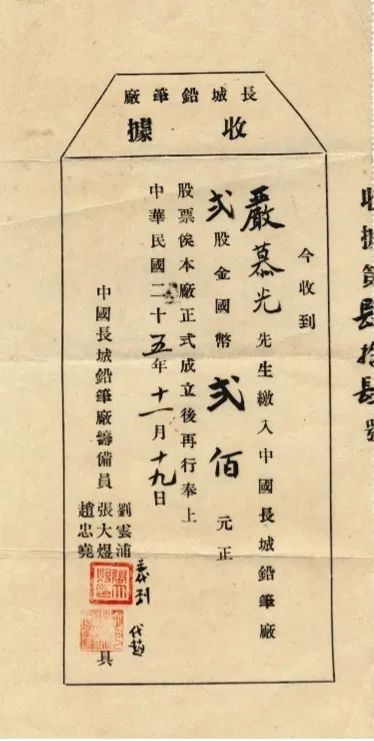 長城鉛筆廠
收據
收據第肆拾肆號
今收到
嚴慕光先生繳入中國長城鉛筆廠
弍股金國幣弍佰元正
股票俟本廠正式成立後再行奉上
中華民國二十五年十一月十九日
中國長城鉛筆廠籌備員
劉雲浦
張大煜
趙忠堯
具
代趙